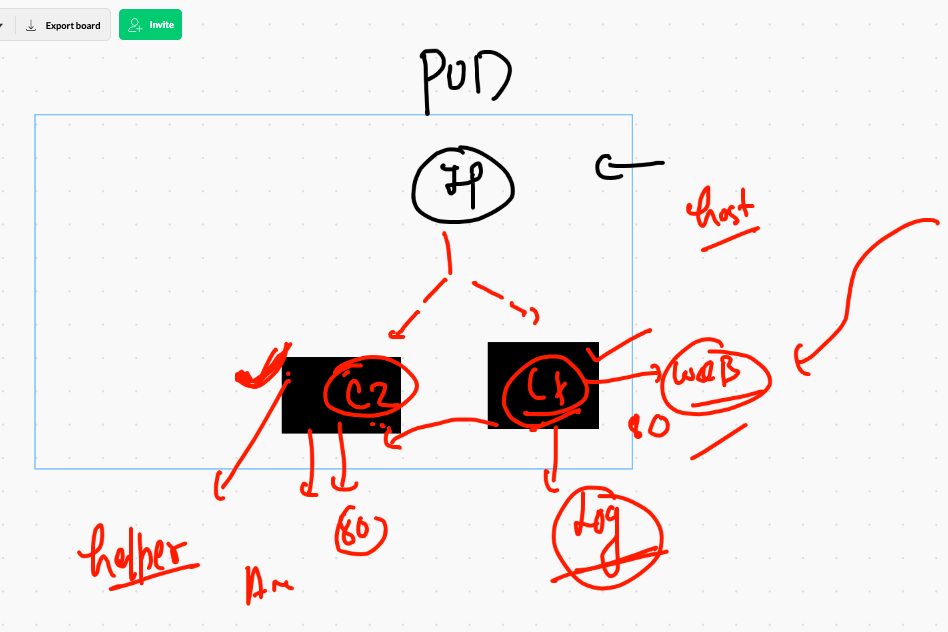 Export board
Invite
POD
IP
host
C2
C1
WEB
80
80
Log
helper